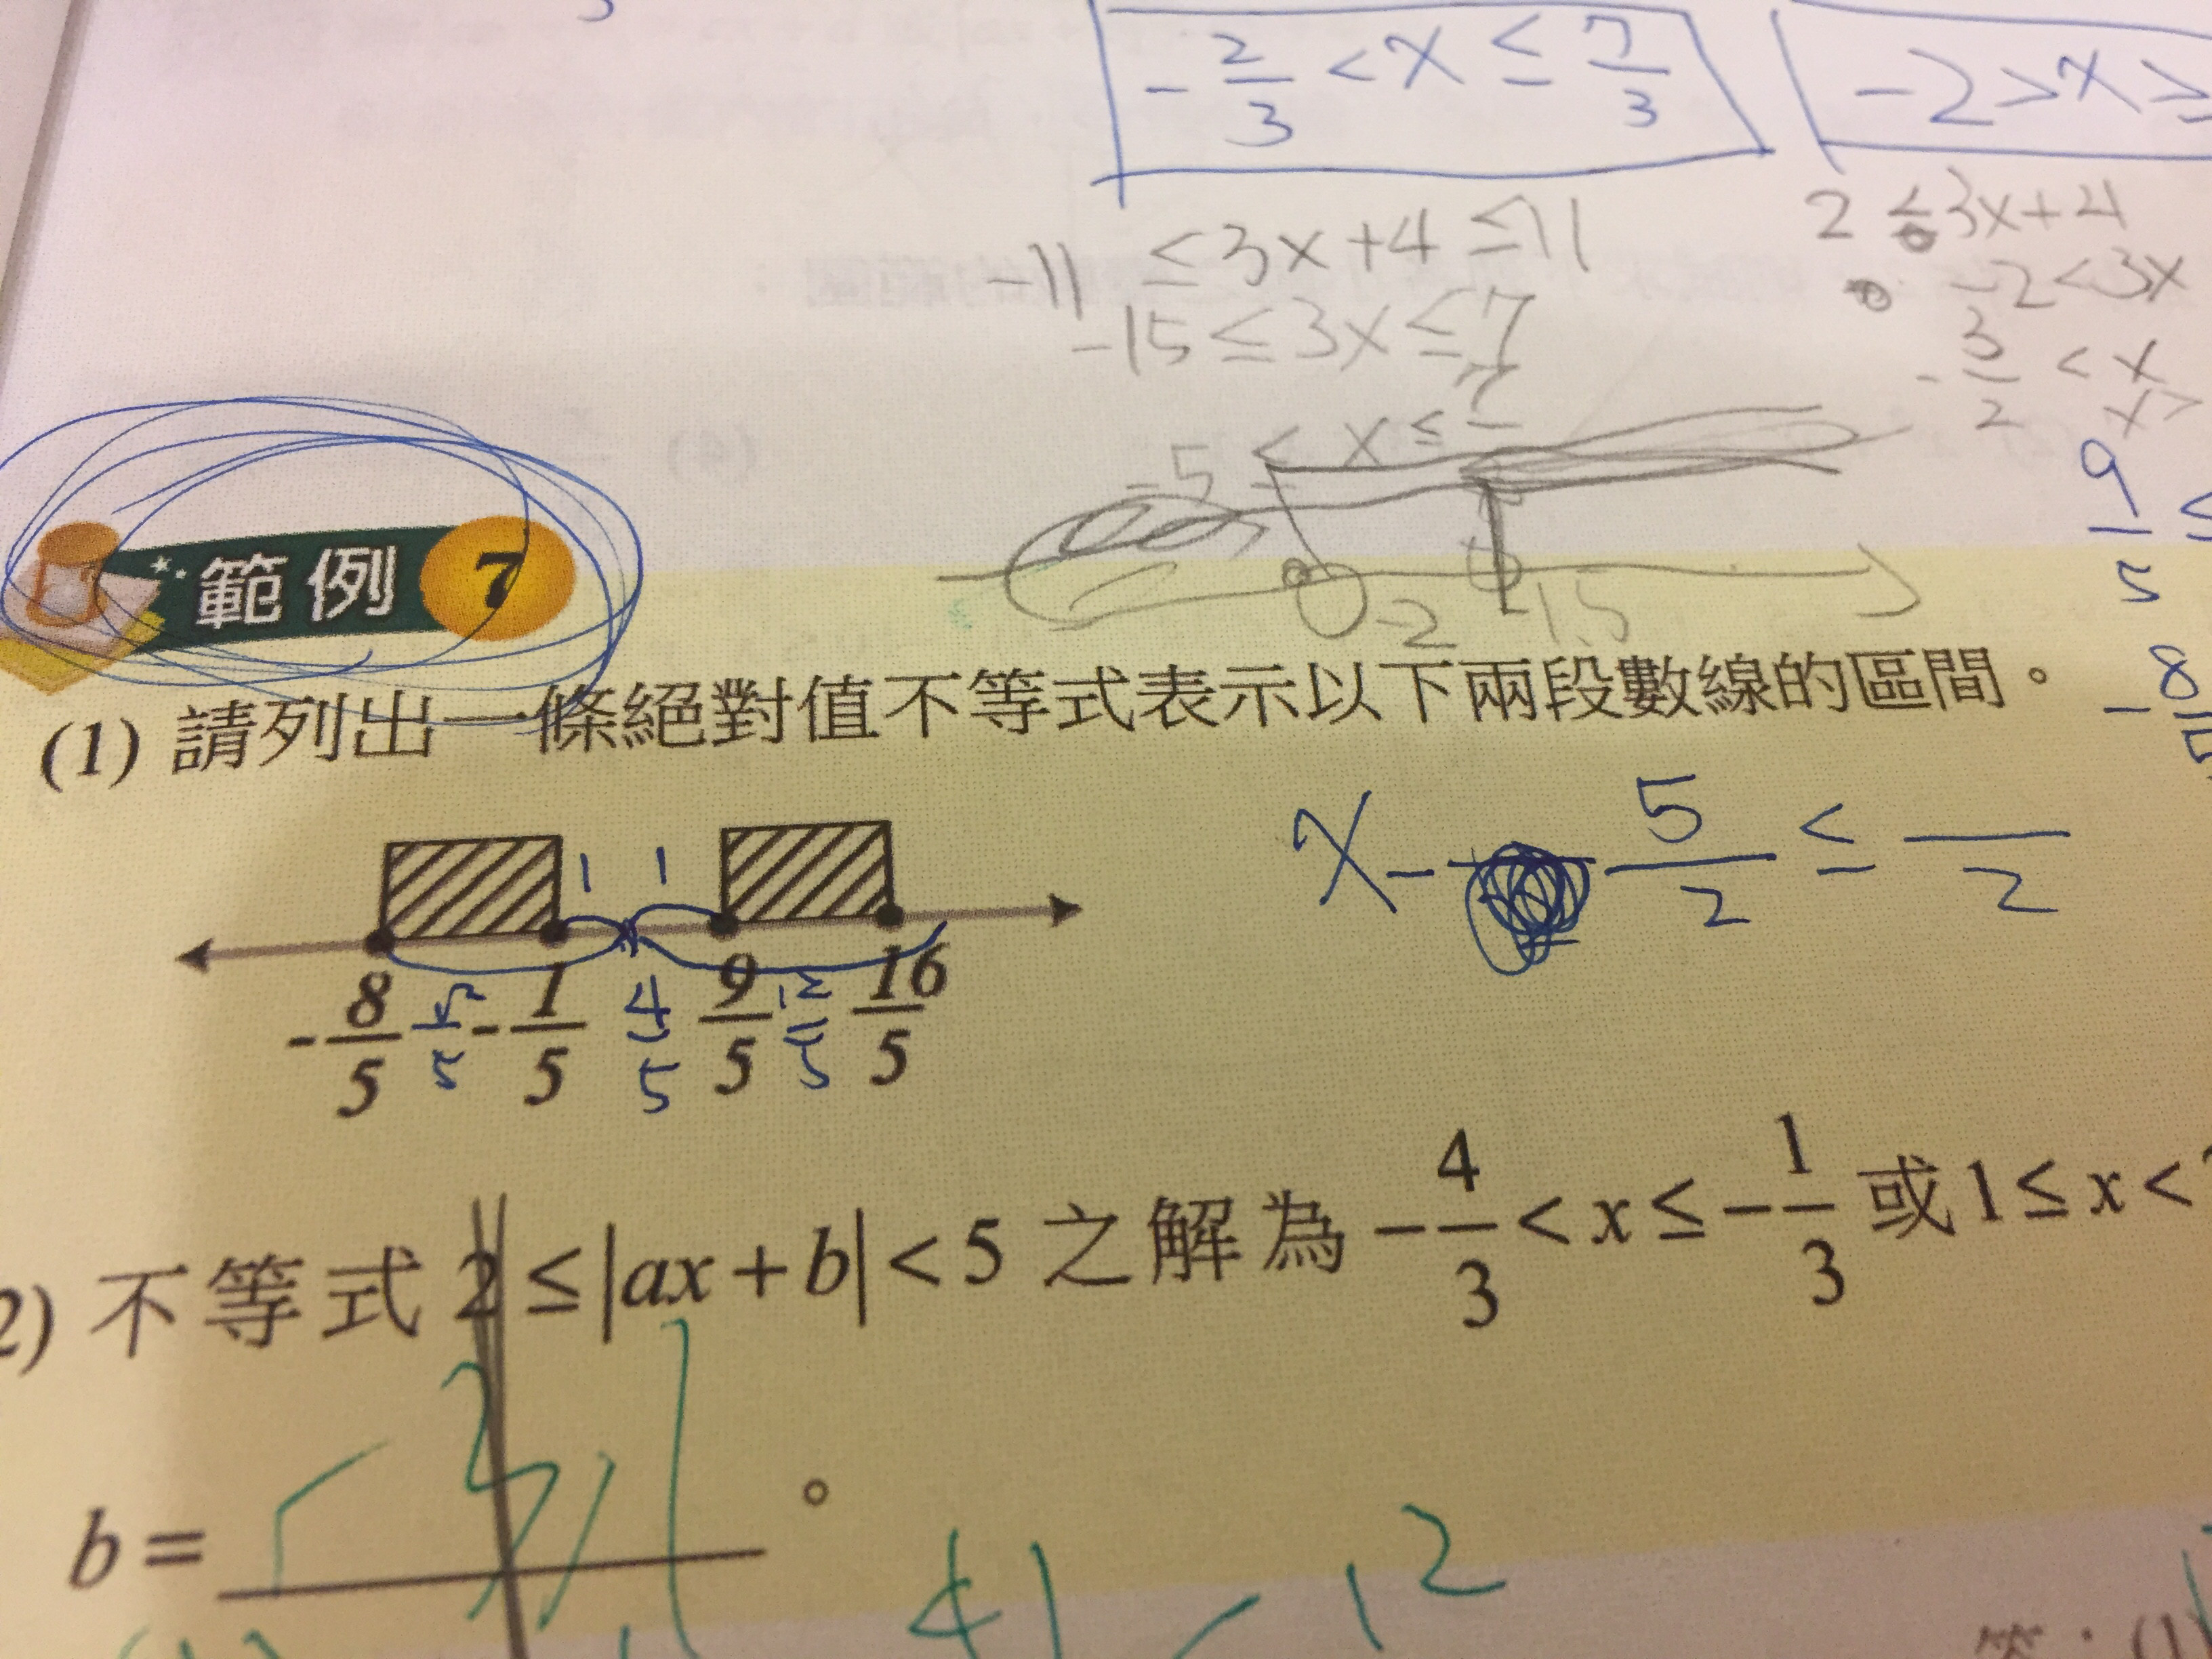 -2/3 < x ≤ 7/3
-2 > x ≥
-11 ≤ 3x + 4 ≤ 11
-15 ≤ 3x ≤ 7
-5 ≤ x ≤ 7
2 ≤ 3x + 4
-2 < 3x
-3/2 < x
x >
-2 -1.5
9/5 ≤
-8/5
範例 7
(1) 請列出一條絕對值不等式表示以下兩段數線的區間。
1 1
-8/5 -1/5 4/5 9/5 12/5 16/5
x - 5/2 ≤ /2
2) 不等式 2 ≤ |ax + b| < 5 之解為 -4/3 < x ≤ -1/3 或 1 ≤ x <
b = 。
答：(1)